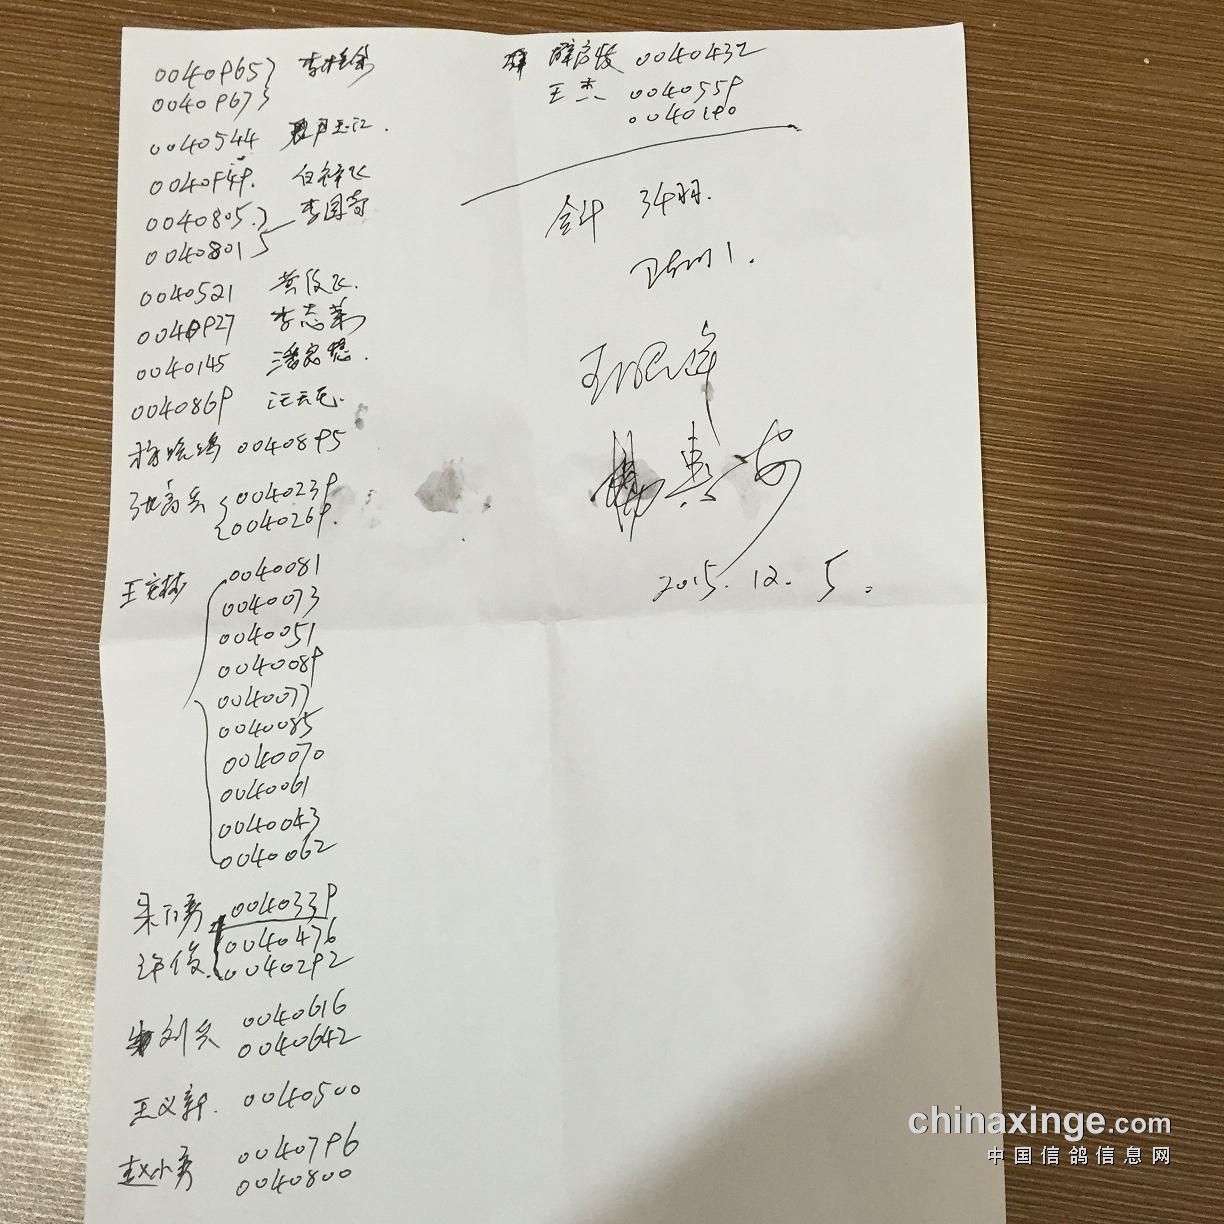 0040965
0040967
李桂余
0040544
0040949.
0040805.
0040801
李国奇
0040521 黄俊飞.
0040927 李志英
0040145 潘忠
0040869 汪云飞.
杨晓鸿 0040895
张高兵 0040239
0040269.
王定林 0040081
0040073
0040051
0040089
0040077
0040085
0040070
0040061
0040043
0040062
朱万勇 0040339
许俊 0040476
0040292
刘兵 0040616
0040642
王义新. 0040500
赵小勇 0040796
0040800
薛 0040432
王杰 0040559
0040190
合计 34羽.
2015.12.5.
chinaxinge.com
中国信鸽信息网